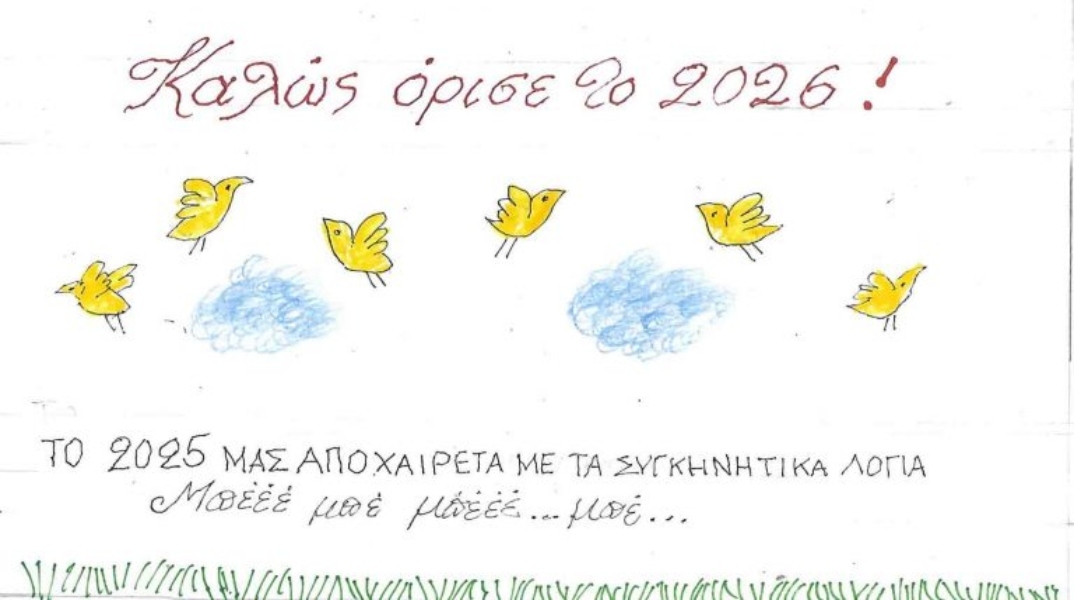 Καλώς όρισε το 2026!
ΤΟ 2025 ΜΑΣ ΑΠΟΧΑΙΡΕΤΑ ΜΕ ΤΑ ΣΥΓΚΗΝΗΤΙΚΑ ΛΟΓΙΑ
Μπέέέ μπέ μπέέέ...μπέ...